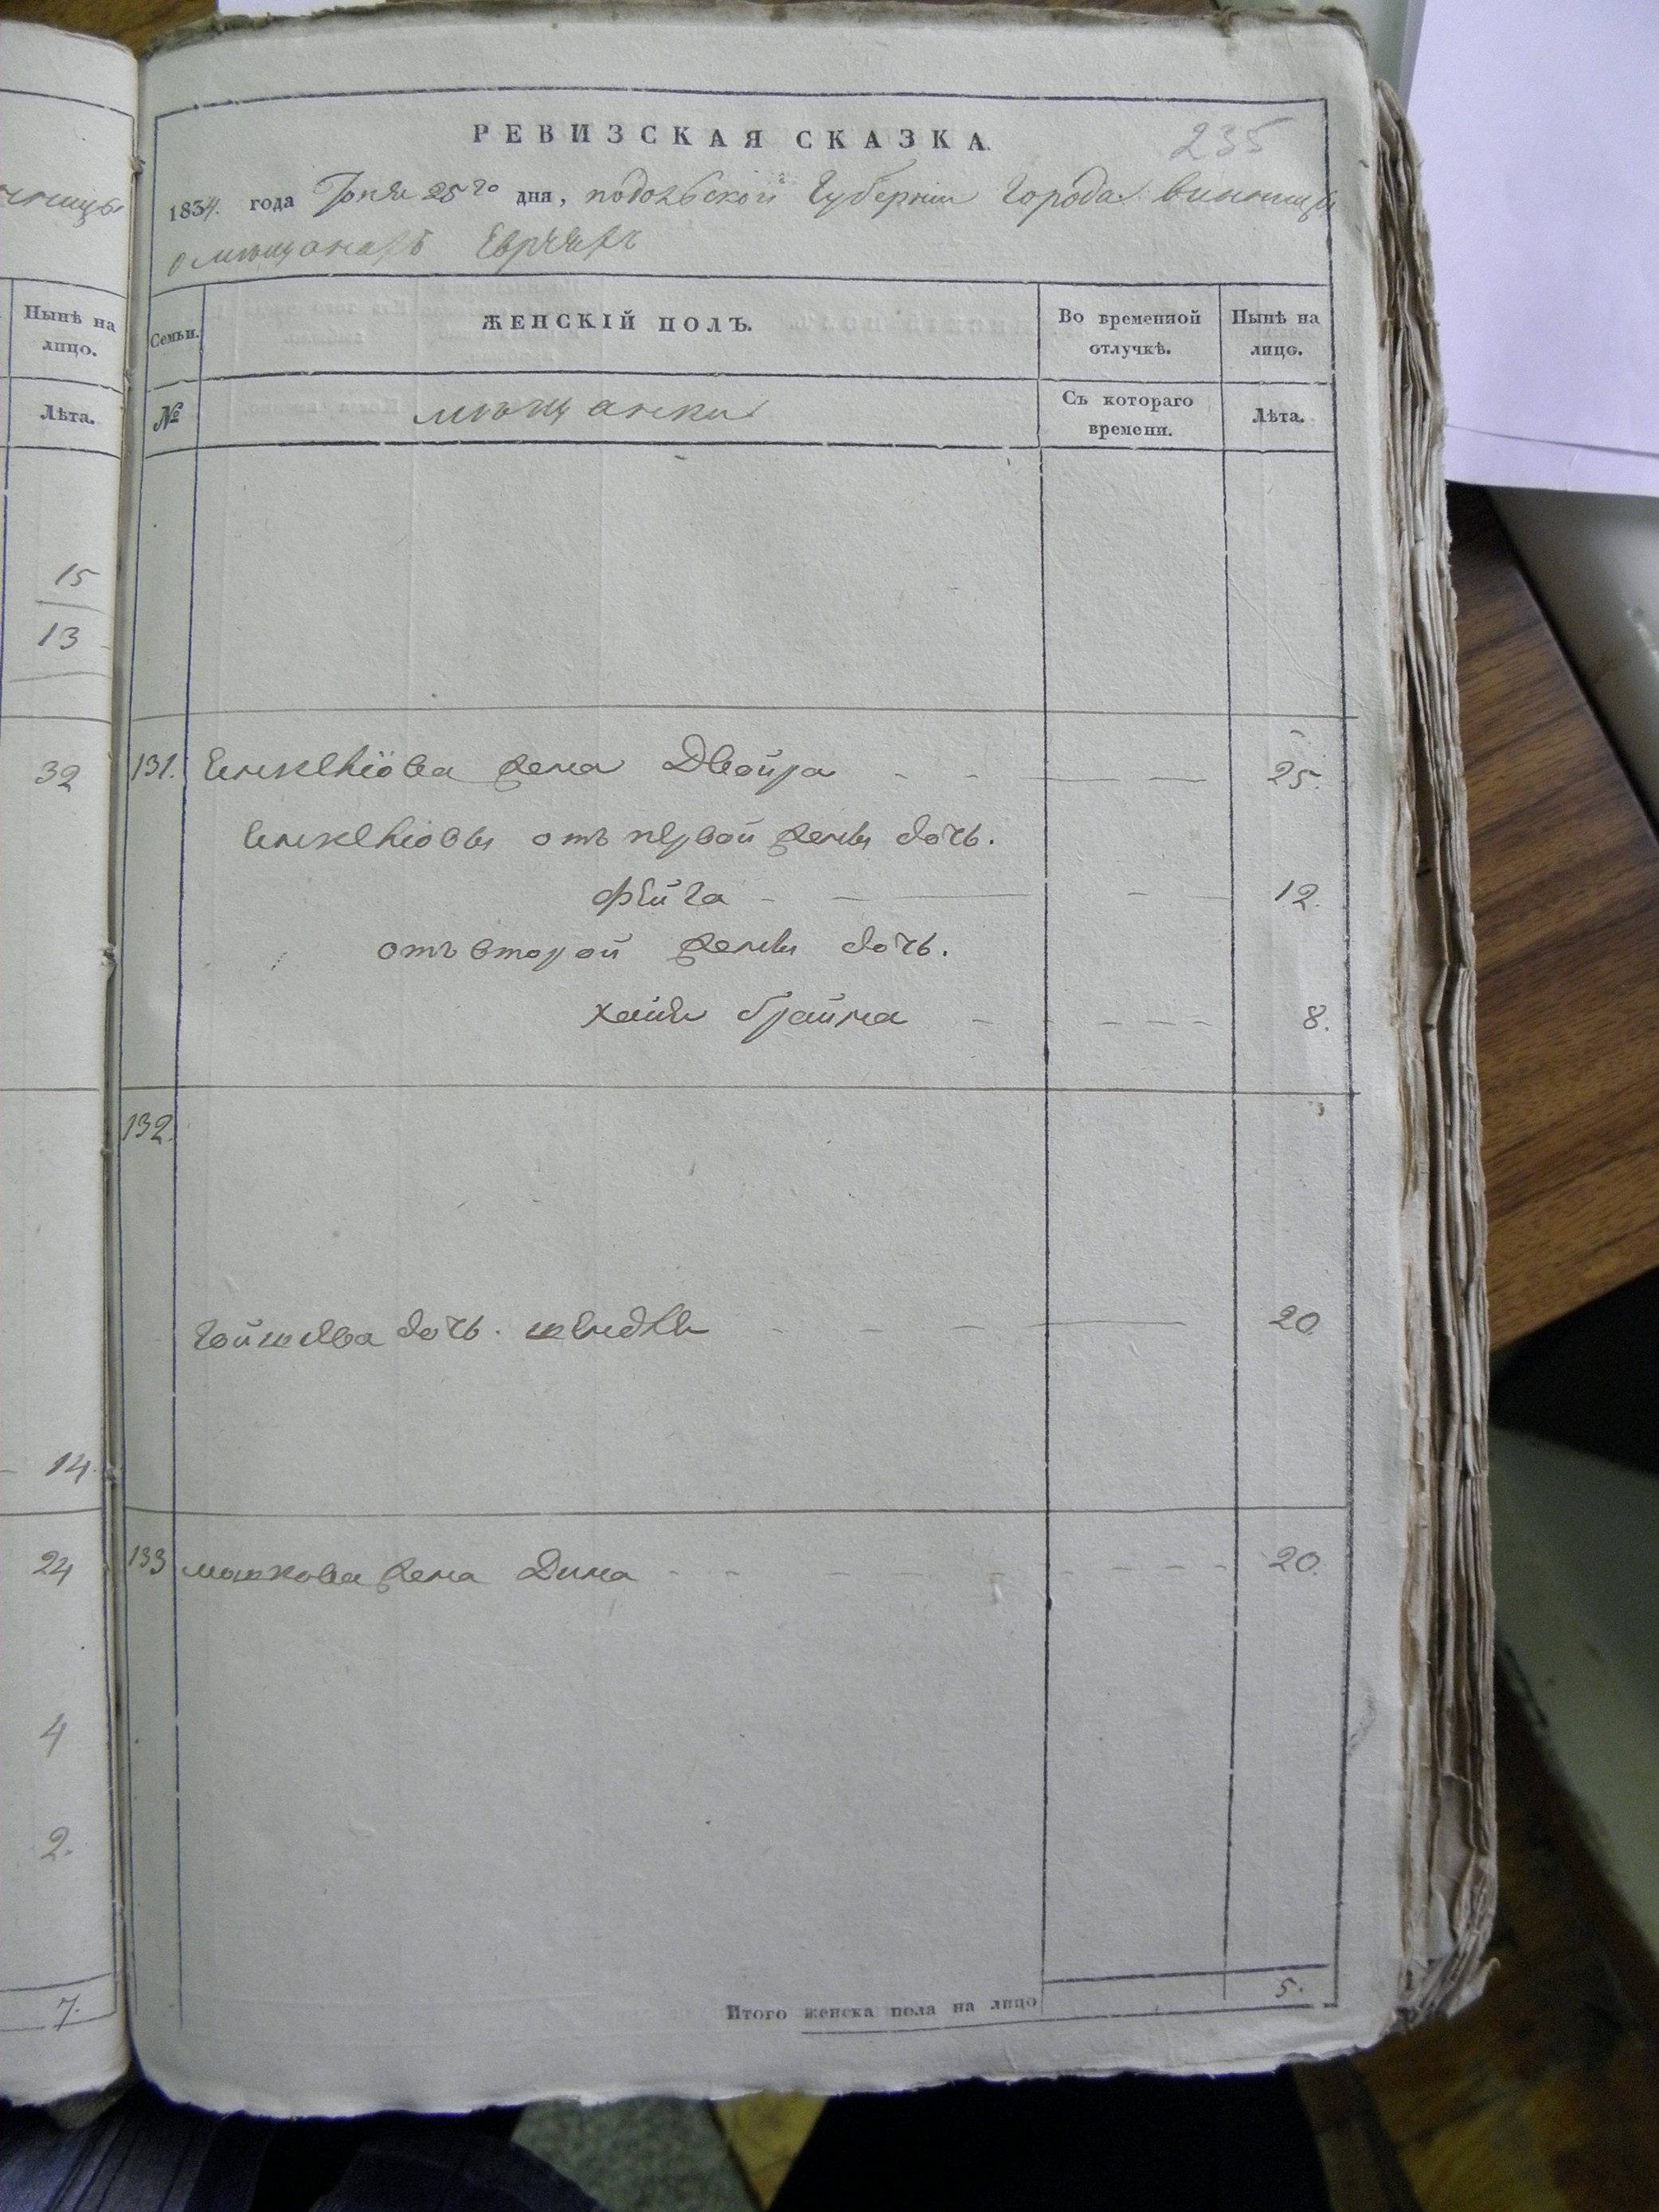 235
РЕВИЗСКАЯ СКАЗКА.
1834. года Іюня 25го дня, подольской Губерніи Города Винницы
о мѣщанахъ Евреяхъ
Семьи.
ЖЕНСКІЙ ПОЛЪ.
Во временной отлучкѣ.
Нынѣ на лицо.
№
мѣщанки
Съ котораго времени.
Лѣта.
131. жена Двойра 25.
отъ первой жены дочь.
Фейга 12.
отъ второй жены дочь.
хая брайна 8.
132.
дочь. шендля 20.
133 мошкова жена Дина 20.
Итого женска пола на лицо 5.
Нынѣ на лицо.
Лѣта.
15
13
32
14
24
4
2.
7.